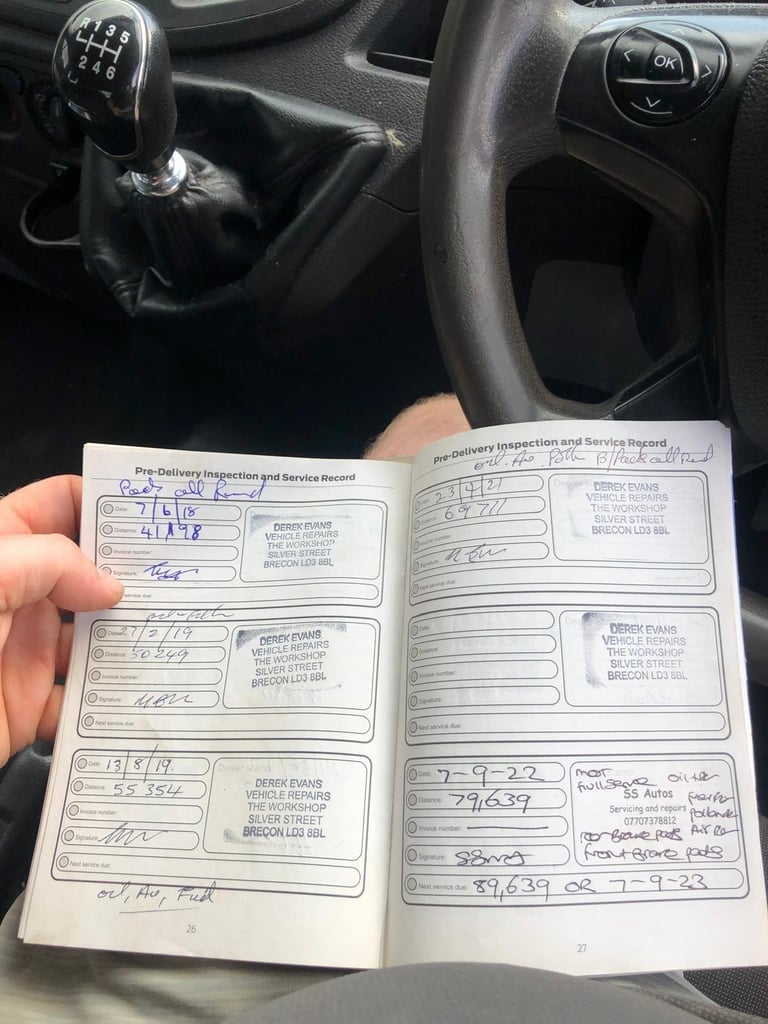 R 1 3 5
2 4 6
OK
Pre-Delivery Inspection and Service Record
Pads all Round
Date: 7/6/18
Distance: 41198
Invoice number:
Signature:
service due:
DEREK EVANS
VEHICLE REPAIRS
THE WORKSHOP
SILVER STREET
BRECON LD3 8BL
Date: 27/2/19
Distance: 50249
Invoice number:
Signature:
Next service due:
DEREK EVANS
VEHICLE REPAIRS
THE WORKSHOP
SILVER STREET
BRECON LD3 8BL
Date: 13/8/19.
Distance: 55354
Invoice number:
Signature:
Next service due:
Dealer stamp
DEREK EVANS
VEHICLE REPAIRS
THE WORKSHOP
SILVER STREET
BRECON LD3 8BL
oil, Air, Fuel
26
Pre-Delivery Inspection and Service Record
oil Air Polln B/Pads all Round
Date: 23/4/21
Distance: 69711
Invoice number:
Signature:
Next service due:
DEREK EVANS
VEHICLE REPAIRS
THE WORKSHOP
SILVER STREET
BRECON LD3 8BL
Date:
Distance:
Invoice number:
Signature:
Next service due:
DEREK EVANS
VEHICLE REPAIRS
THE WORKSHOP
SILVER STREET
BRECON LD3 8BL
Date: 7-9-22
Distance: 79,639
Invoice number:
Signature:
Next service due: 89,639 OR 7-9-23
mot
full service
SS Autos
Servicing and repairs
07707378812
rear Brake pads
front Brake pads
27